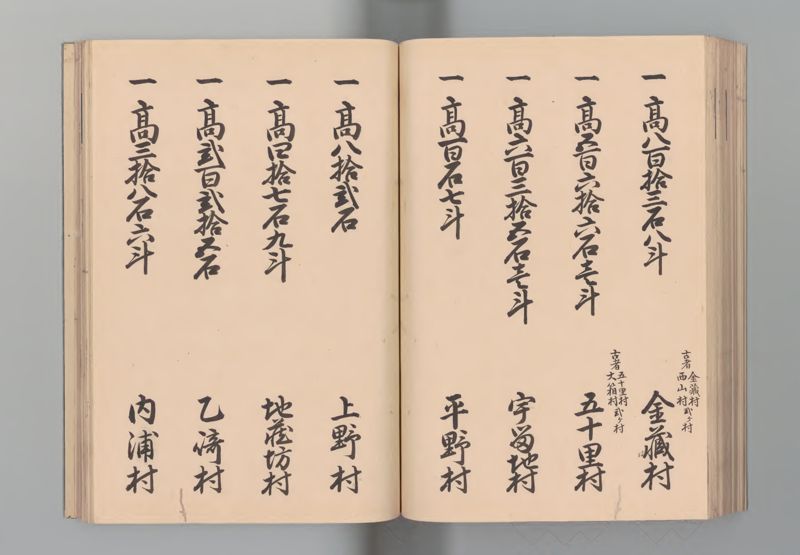 一高八百拾三石八斗
古者金藏村西山村弐ヶ村
金藏村
一高五百六拾六石壱斗
古者五十里村大箱村弐ヶ村
五十里村
一高六百三拾五石壱斗
宇留地村
一高百石七斗
平野村
一高八拾弐石
上野村
一高四拾七石九斗
地蔵坊村
一高弐百弐拾五石
乙﨑村
一高三拾八石六斗
内浦村